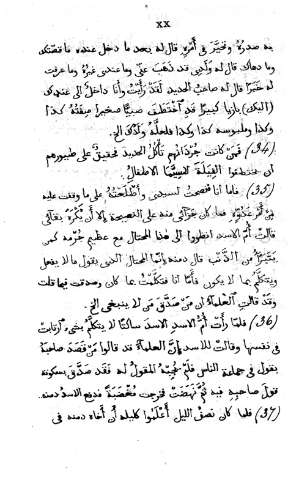 XX
به صدره وتحيّر في أمره قال له بعد ما دخل عنده ما قصّتك
وما دهاك قال له ولدي قد ذهب عنّي وما عندي غيره وما عرفت
له خبرًا قال له صاحب الحديد لقد رأيت وأنا داخل الى عندك
(اليك) بازيا كبيرًا قد اختطف صبيًّا صغيرا صفته كذا
وكذا وملبوسه كذا وكذا فلعله ولدك الخ.
(34) فمن كانت جرذانهم تأكل الحديد فحقيق على طيورهم
ان تختطفوا الفيلة لا سيما الاطفال
(35) فلما أنا فصحت لسيدي وأطلعته على ما وقفت عليه
من أمر عدوّه فما كان جزائي منه على النصيحة إلا أن يكره بقائي
قالت أم الاسد انظروا الى هذا المحتال مع عظيم جرمه كمن
من الذنب قال دمنه إنما المحتال الذي يقول ما لا يفعل
ويتكلم بما لا يكون فأما أنا فتكلمت بما كان وصدقت فيما قلت
وقد قالت العلماء ان من صدّق من لا ينبغي الخ.
(36) فلما رأت أم الاسد الاسد ساكتا لا يتكلم بشيء ارتابت
في نفسها وقالت للاسد إن العلماء قد قالوا من قصد صاحبه
بقول في جماعة الناس فلم يجبه المقول له فقد صدق بسكوته
قول صاحبه فيه ثم نهضت فخرجت مغضبة فدفع الاسد دمنه.
(37) فلما كان نصف الليل أعلموا كليله أن أخاه دمنه في